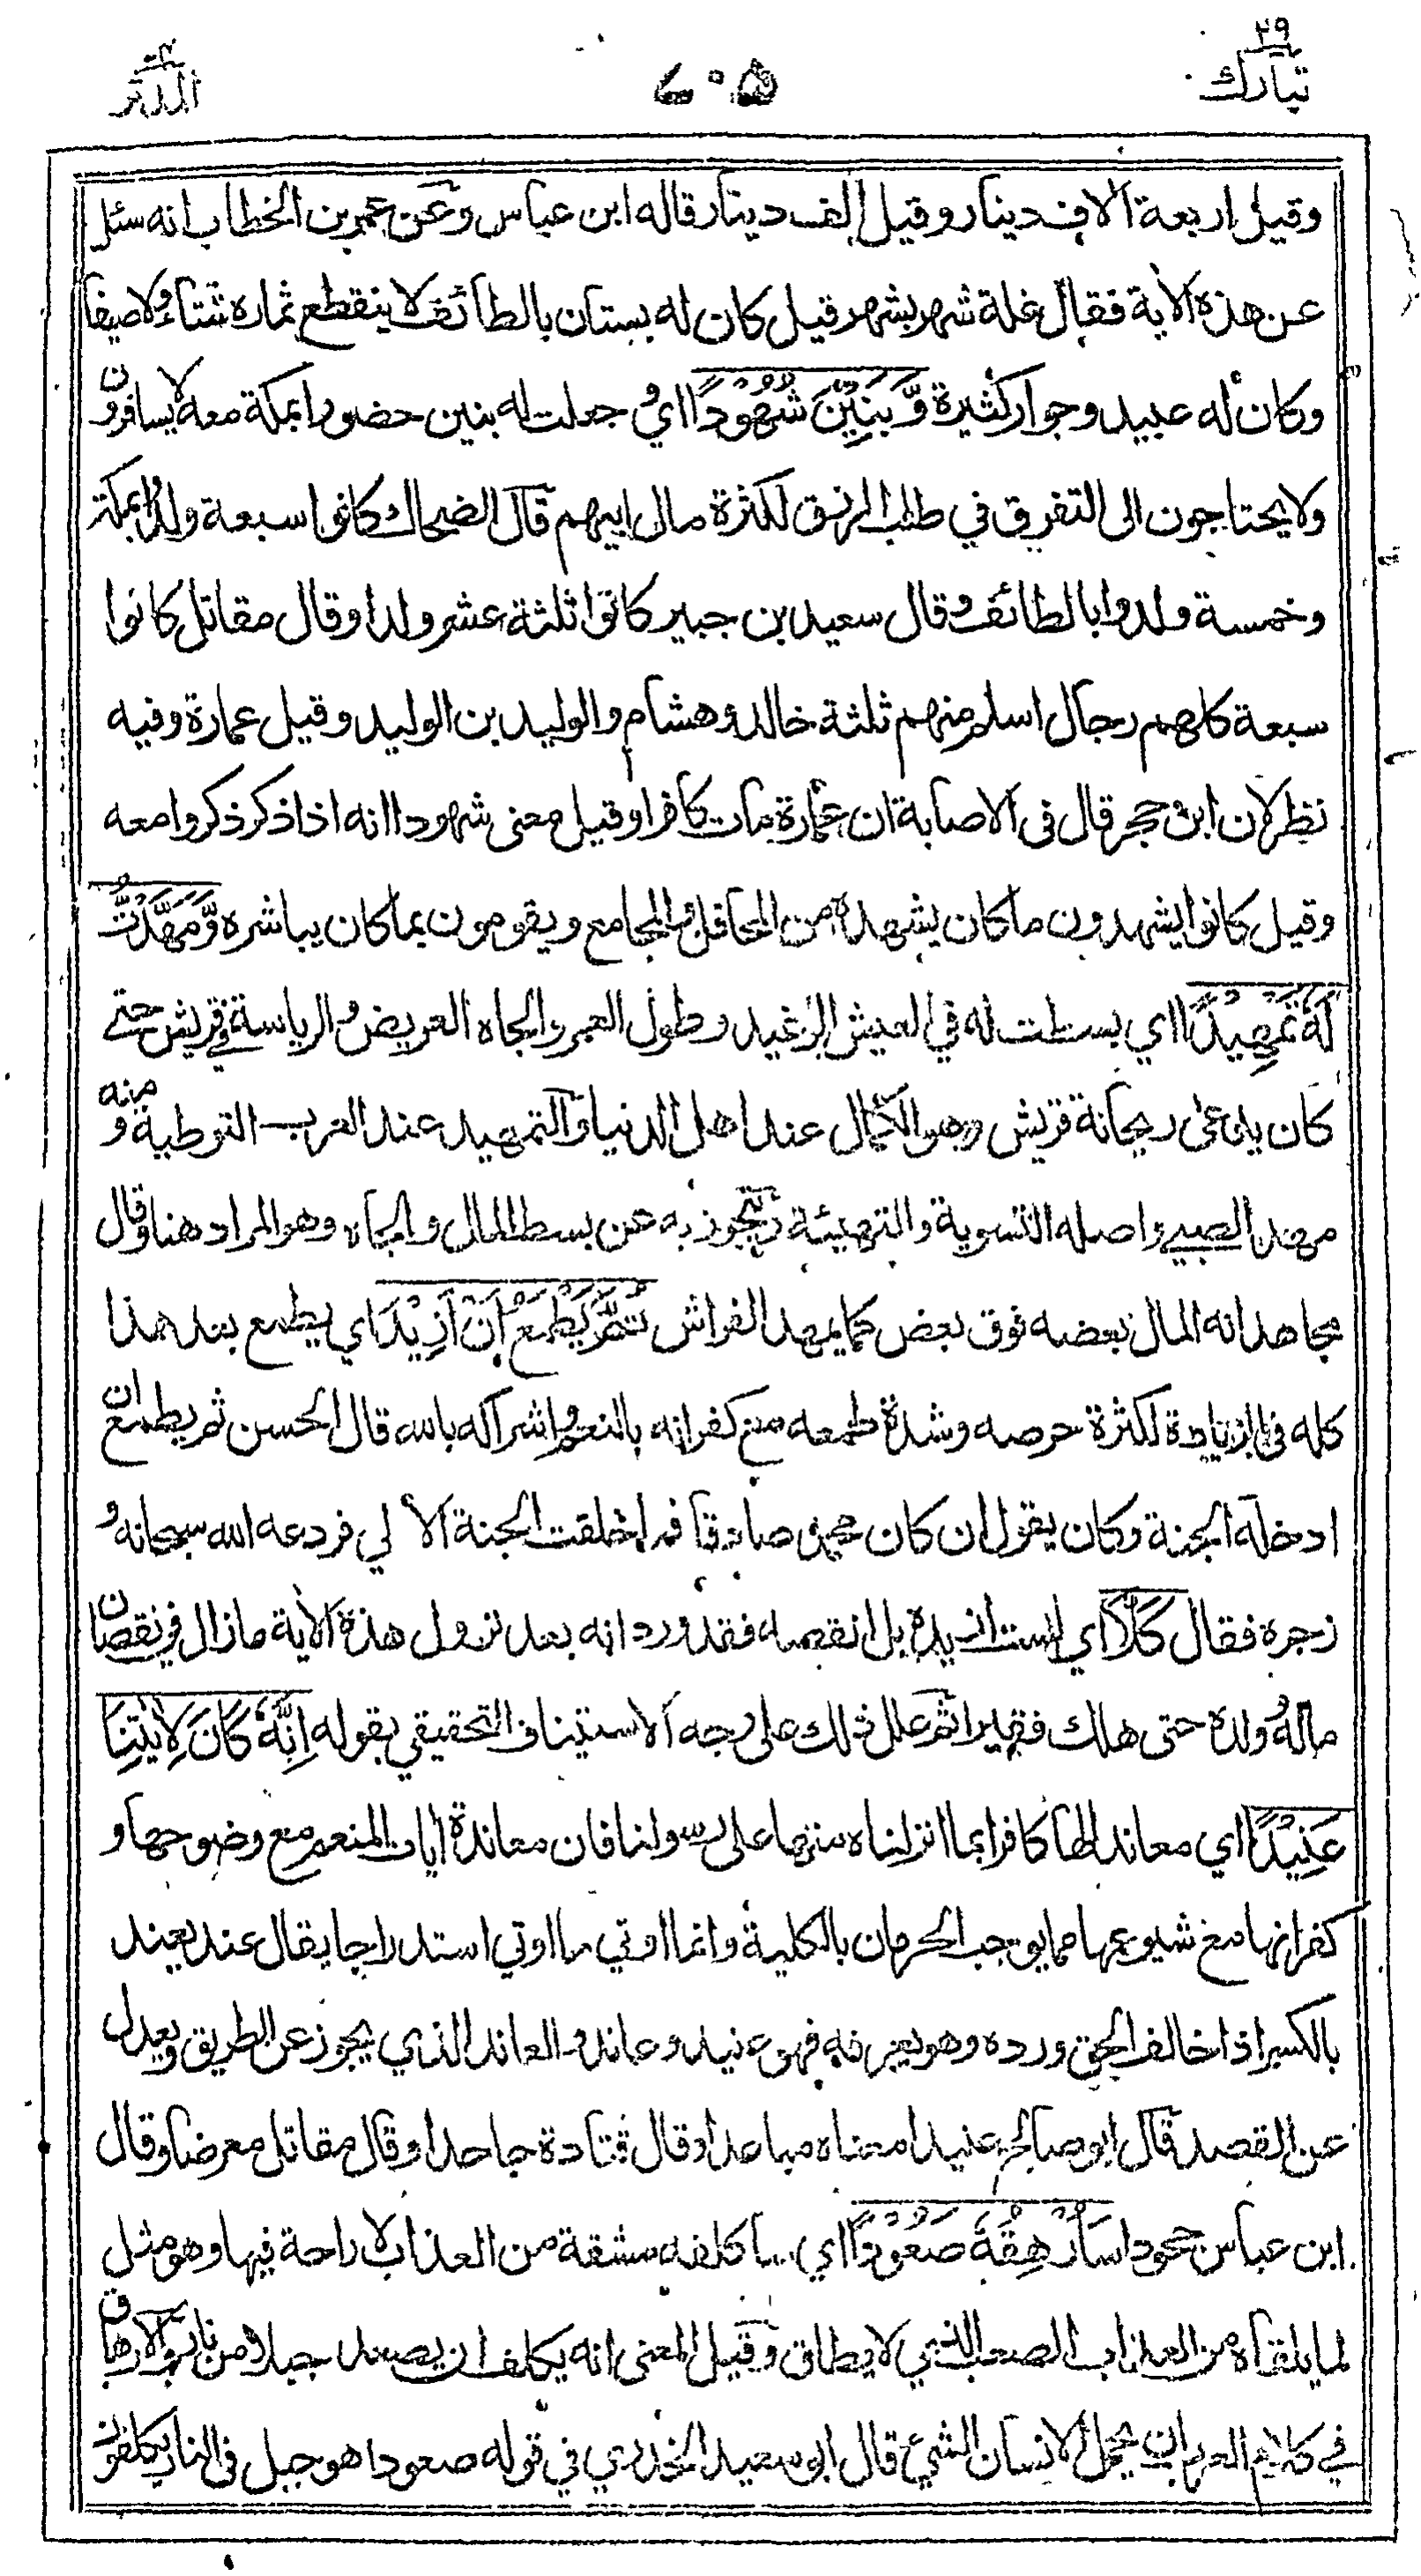 تبارك ٢٩
٥٠٧
المدثر
وقيل اربعة الاف دينار وقيل الف دينار قاله ابن عباس وعن عمر بن الخطاب انه سئل
عن هذه الاية فقال غلة شهر بشهر قيل كان له بستان بالطائف لا ينقطع ثماره شتاء ولا صيفا
وكان له عبيد وجوار كثيرة وَّبَنِيْنَ شُهُوْدًا اي وجعلت له بنين حضورا بمكة معه لا يسافرون
ولا يحتاجون الى التفرق في طلب الرزق لكثرة مال ابيهم قال الضحاك كانوا سبعة ولدوا بمكة
وخمسة ولدوا بالطائف وقال سعيد بن جبير كانوا ثلثة عشر ولدا وقال مقاتل كانوا
سبعة كلهم رجال اسلم منهم ثلثة خالد وهشام والوليد بن الوليد وقيل عمارة وفيه
نظر لان ابن حجر قال فى الاصابة ان عمارة مات كافرا وقيل معنى شهودا انه اذا ذكر ذكروا معه
وقيل كانوا يشهدون ما كان يشهده من المحافل والمجامع ويقومون بما كان يباشره وَّمَهَّدْتُّ
لَهُ تَمْهِيْدًا اي بسطت له في العيش الرغيد وطول العمر والجاه العريض والرياسة في قريش حتى
كان يدعى ريحانة قريش وهو الكمال عند اهل الدنيا والتمهيد عند العرب التوطية ومنه
مهد الصبي واصله التسوية والتهيئة ويتجوز به عن بسط المال والجاه وهو المراد هنا وقال
مجاهد انه المال بعضه فوق بعض كما يمهد الفراش ثُمَّ يَطْمَعُ اَنْ اَزِيْدَ اي يطمع بعد هذا
كله فى الزيادة لكثرة حرصه وشدة طمعه مع كفرانه بالنعم واشراكه بالله قال الحسن ثم يطمع ان
ادخله الجنة وكان يقول ان كان محمد صادقا فما خلقت الجنة الا لي فردعه الله سبحانه و
زجره فقال كَلَّا اي لست ازيده بل انقصه فقد ورد انه بعد نزول هذه الاية ما زال في نقصان
ماله وولده حتى هلك فقيرا ثم علل ذلك على وجه الاستيناف التحقيقي بقوله اِنَّهٗ كَانَ لِاٰيٰتِنَا
عَنِيْدًا اي معاندا لها كافرا بما انزلناه منها على رسولنا فان معاندة ايات المنعم مع وضوحها و
كفرانها مع شيوعها مما يوجب الحرمان بالكلية وانما اوتي ما اوتي استدراجا يقال عند يعند
بالكسر اذا خالف الحق ورده وهو يعرفه فهو عنيد وعاند والعاند الذي يجوز عن الطريق ويعدل
عن القصد قال ابو صالح عنيدا معناه مباعدا وقال قتادة جاحدا وقال مقاتل معرضا وقال
ابن عباس جحودا سَاُرْهِقُهٗ صَعُوْدًا اي ساكلفه مشقة من العذاب لا راحة فيها وهو مثل
لما يلقاه من العذاب الصعب الذي لا يطاق وقيل المعنى انه يكلف ان يصعد جبلا من نار والارهاق
في كلام العرب ان يحمل الانسان الشيئ قال ابو سعيد الخدري في قوله صعودا هو جبل فى النار يكلفون